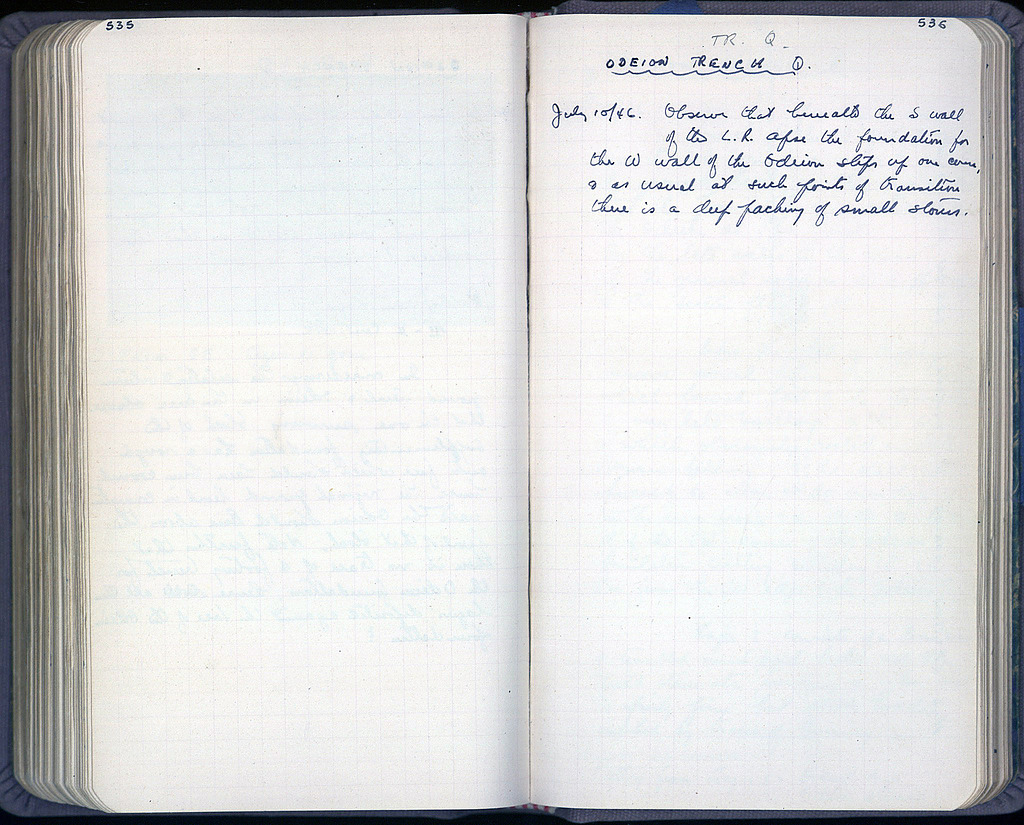 535
536
TR. Q.
ODEION TRENCH Q.
July 10/46. Observe that beneath the S wall
of the L.R. apse the foundation for
the W wall of the Odeion steps up one course,
& as usual at such points of transition
there is a deep packing of small stones.